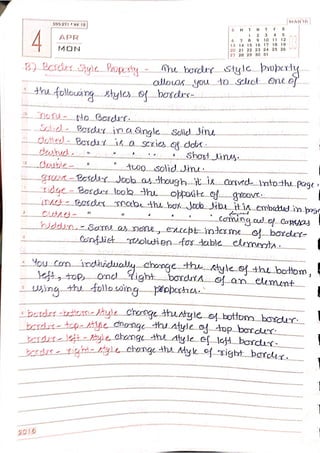 095-271 • WK 15
MARCH
4 APR
MON
S M T W T F S
1 2 3 4 5
6 7 8 9 10 11 12
13 14 15 16 17 18 19
20 21 22 23 24 25 26
27 28 29 30 31
B) Border Style Property - The border style property
allows you to select one of
the following styles of border-
none - No Border.
Solid - Border in a single solid line
dotted - Border is a series of dots.
dashed. " " " " " short lines.
double - " " two solid line.
groove - Border look as though it is carved into the page.
ridge - Border look the opposite of groove.
inset - Border make the box look like it is embedded in page
outset - " " " " " coming out of canvas
hidden. - Same as none, except in terms of border-
conflict resolution for table elements.
You can individually change the style of the bottom,
left, top, and right borders of an element
using the following properties:
border-bottom-style change the style of bottom border.
border-top-style change the style of top border.
border-left-style change the style of left border.
border-right-style change the style of right border.
2016